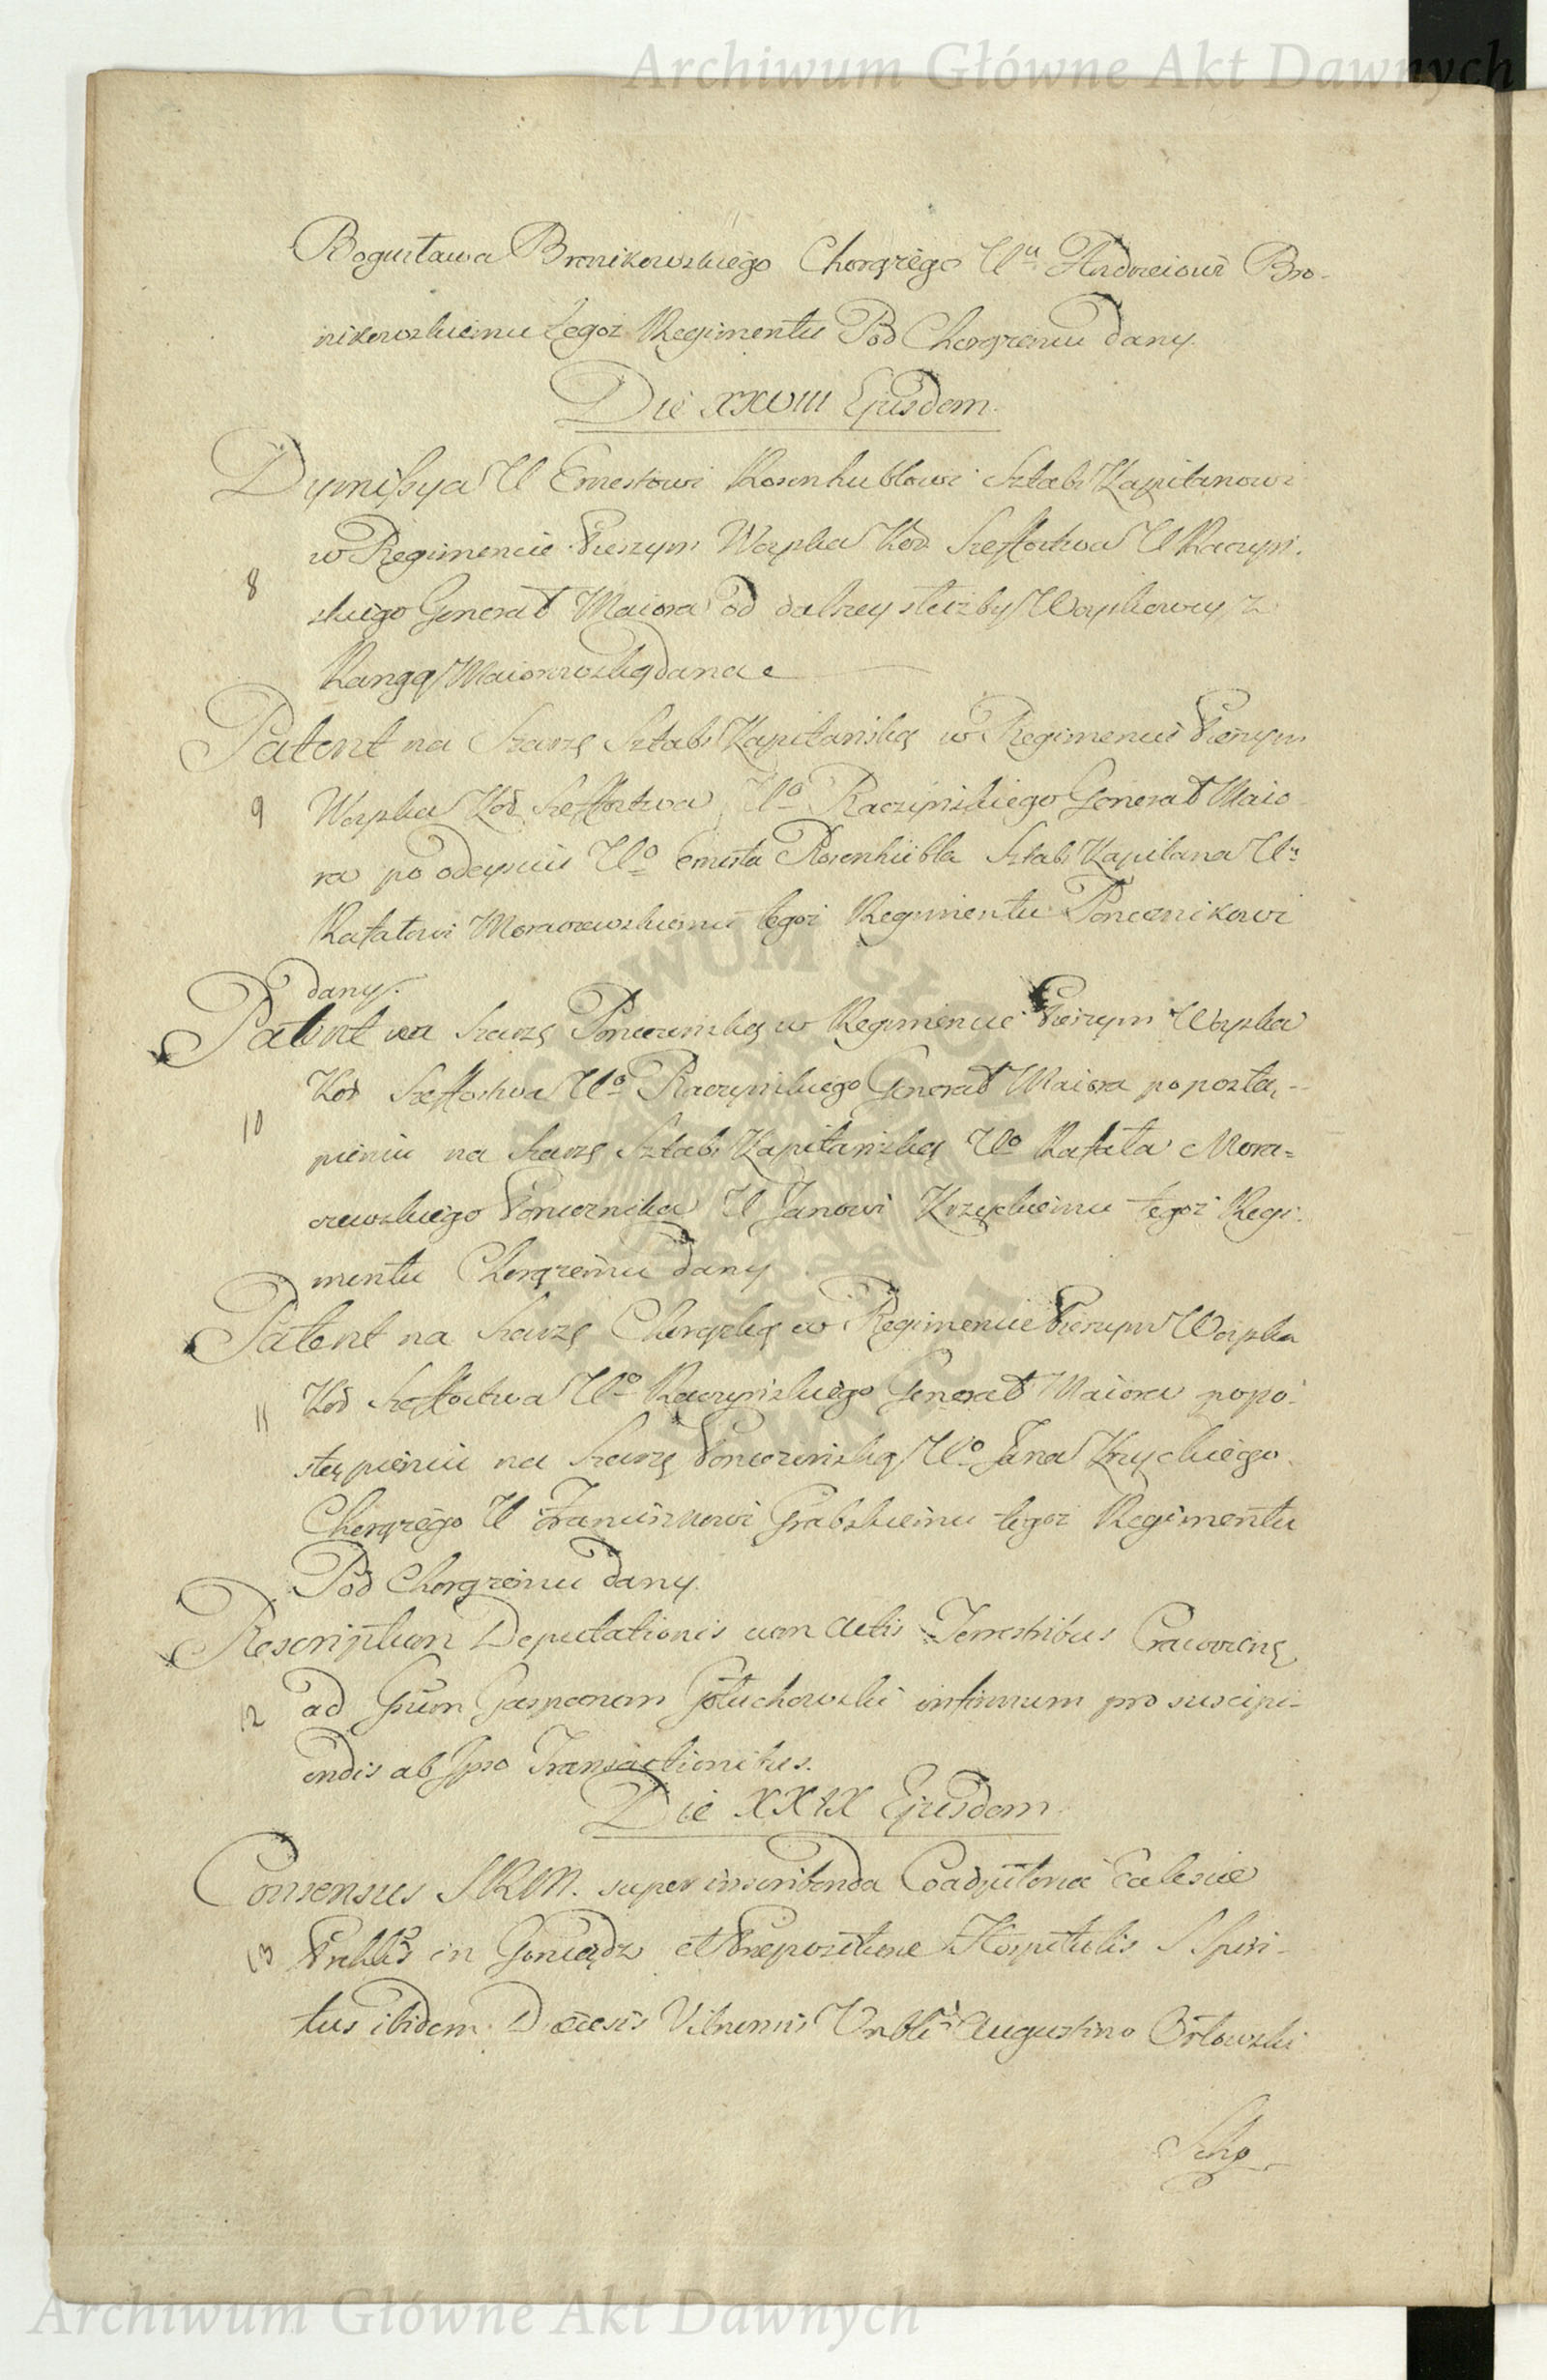 Archiwum Główne Akt Dawnych
Bogusława Bronikowskiego Chorążego Wu Andrzeiowi Bro-
nikowskiemu tegoż Regimentu Pod Chorążemu dany.
Die XXVIII Ejusdem.
Dymissya W Ernestowi Rosenhublowi Sztabs Kapitanowi
w Regimencie Pieszym Woyska Kor. Szeffostwa W Raczyń-
8
skiego Generał Maiora od dalszey służby Woyskowey z
Rangą Maiorowską dana
Patent na Szarżę Sztabs Kapitańską w Regimencie Pieszym
9 Woyska Kor Szeffostwa Wo Raczyńskiego Generał Maio-
ra po odeyściu Wo Ernesta Rosenhübla Sztabs Kapitana Wu
Rafałowi Moraczewskiemu tegoż Regimentu Porucznikowi
dany.
Patent na Szarżę Poruczniską w Regimencie Pieszym Woyska
Kor Szeffostwa Wo Raczyńskiego Generał Maiora po postą-
10
pieniu na Szarżę Sztabs Kapitańską Wo Rafała Mora=
czewskiego Porucznika W Janowi Krzyckiemu tegoż Regi-
mentu Chorążemu dany.
Patent na Szarżę Chorąską w Regimencie Pieszym Woyska
11 Kor Szeffostwa Wo Raczyńskiego Generał Maiora po po-
stąpieniu na Szarżę Poruczniską Wo Jana Krzyckiego
Chorążego W Franciszkowi Grabskiemu tegoż Regimentu
Pod Chorążemu dany.
Rescriptum Deputationis cum Actis Terrestribus Cracovien
12 ad Gsum Gasparum Głuchowski infirmum pro suscipi-
endis ab Ipso Transactionibus.
Die XXIX Ejusdem
Consensus SRM. super inscribenda Coadjutoria Ecclesiae
13 in Goniądz et Praepositurae Hospitalis S Spiri-
tus ibidem Diecesis Vilnensis Vnbli Augustino Orłowski
Archiwum Główne Akt Dawnych